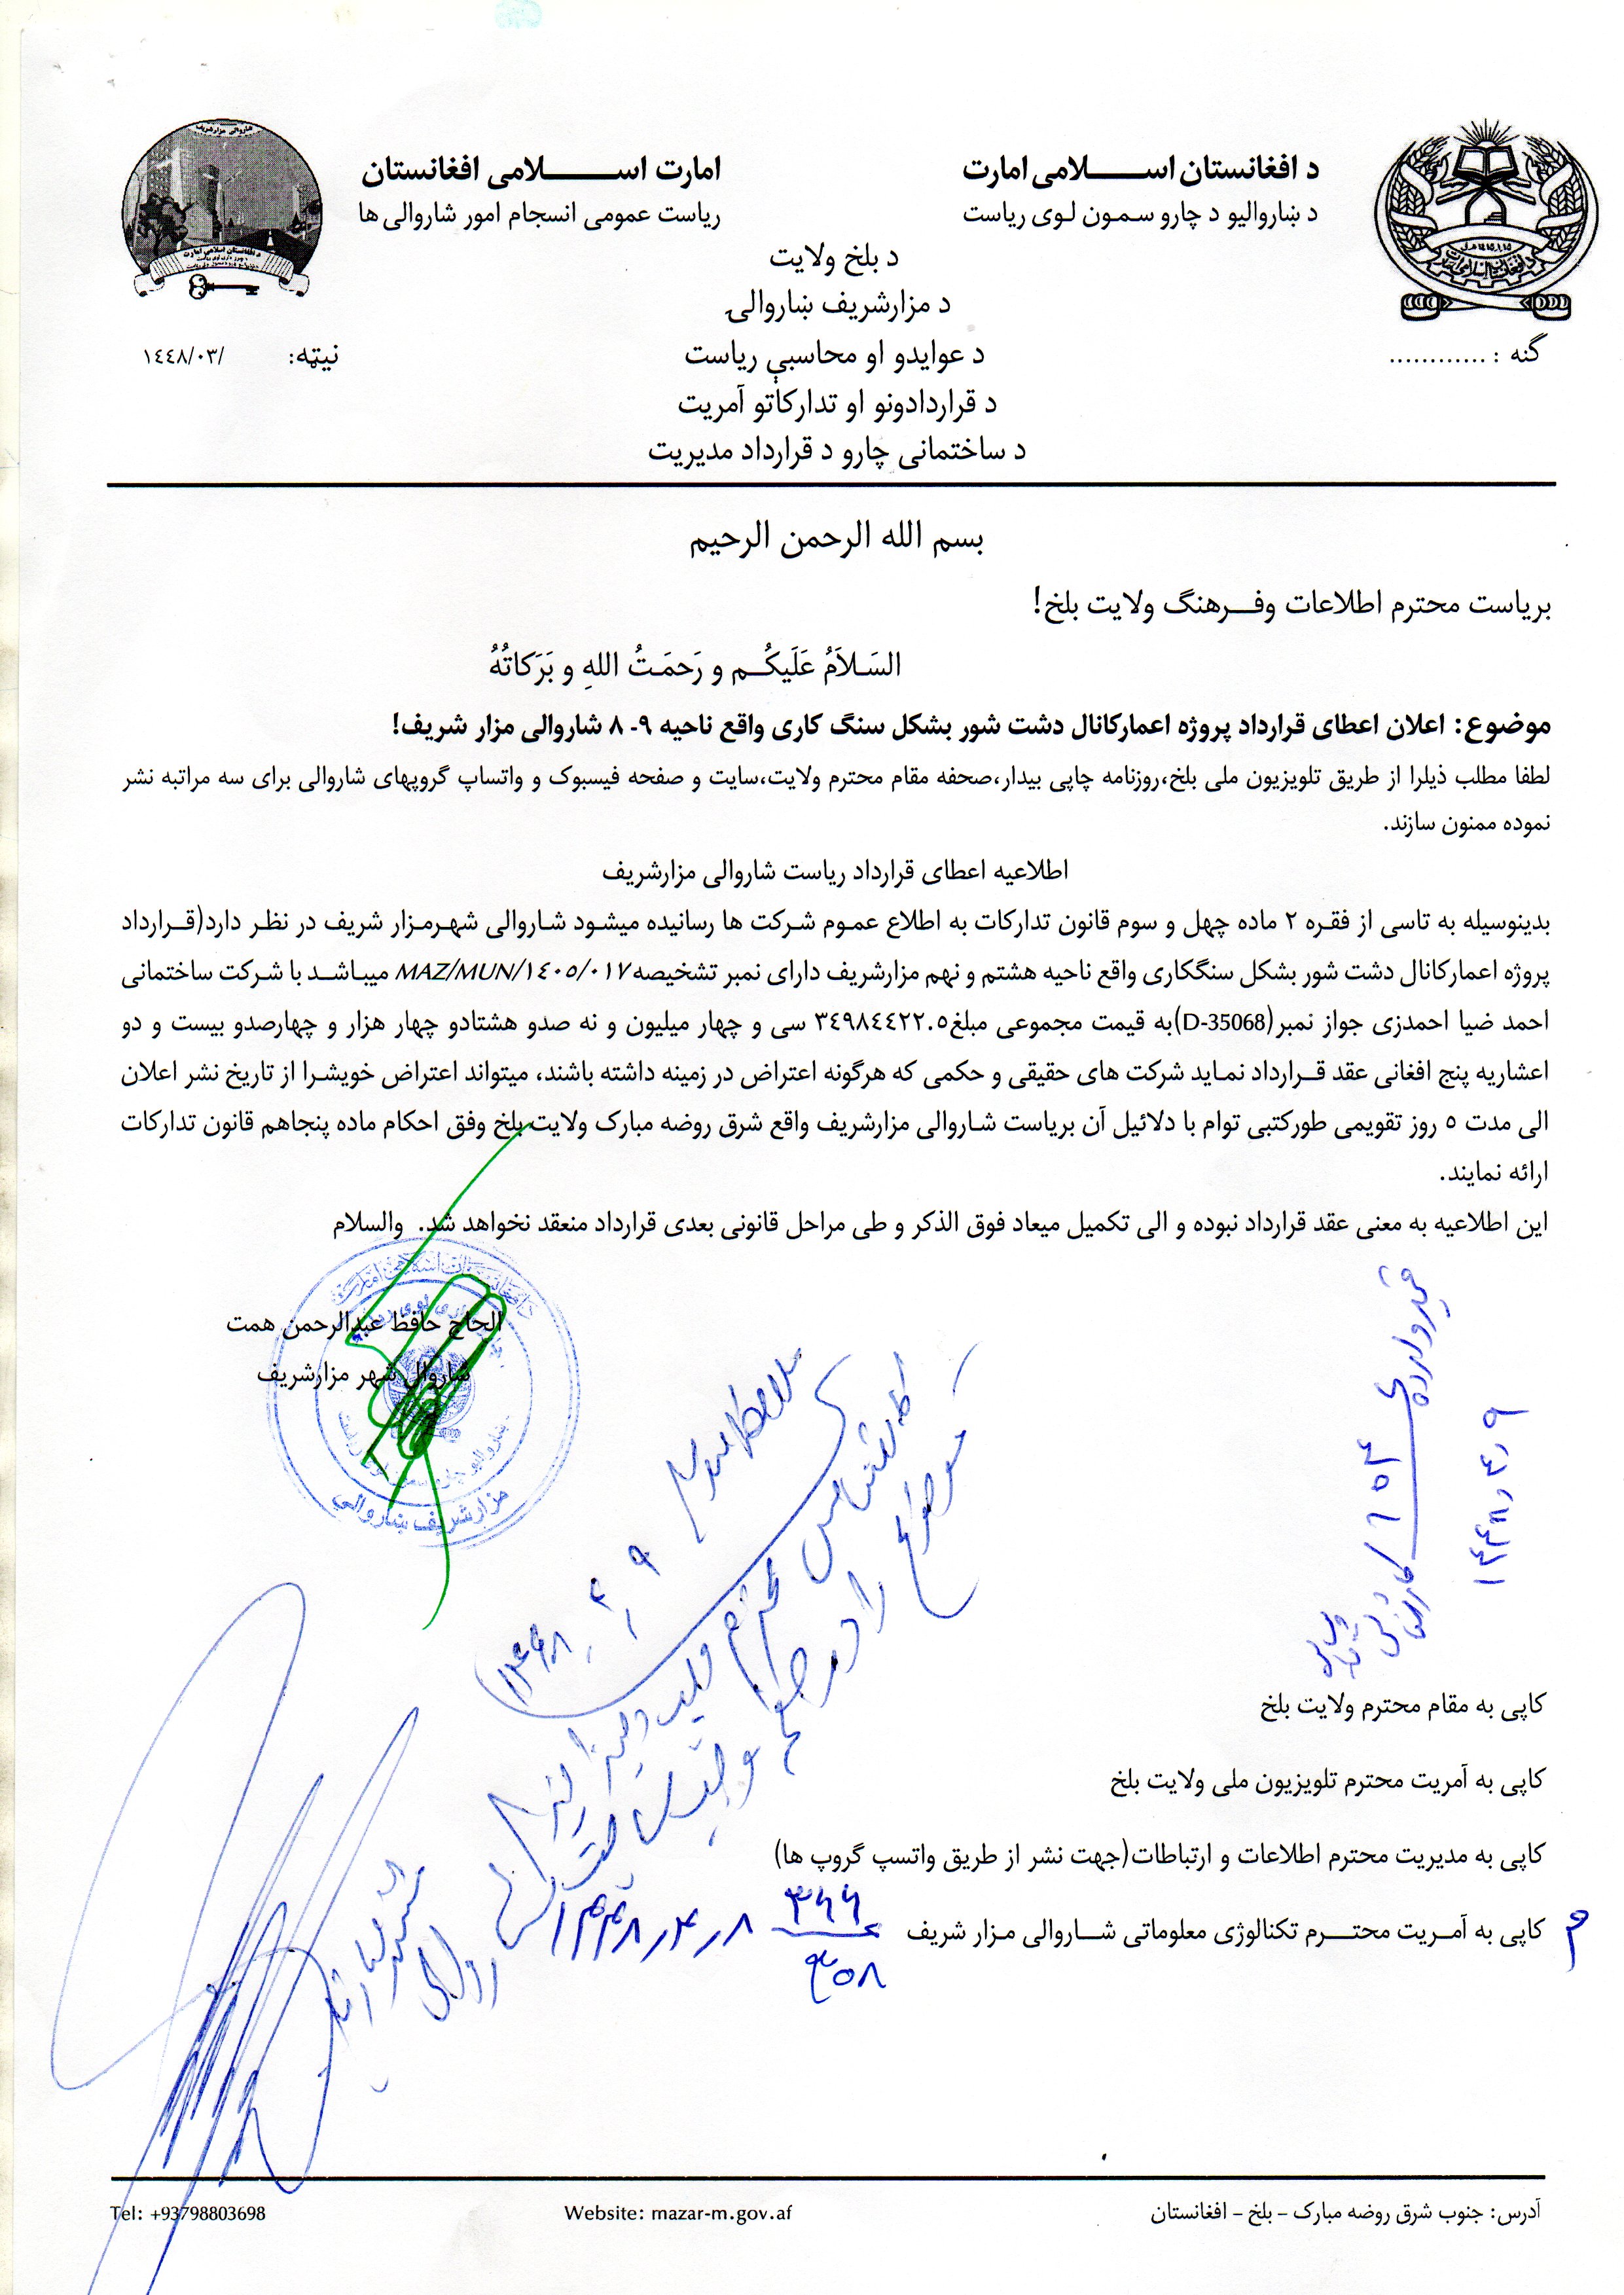 د افغانستان اســــــلامی امارت
امارت اســــــلامی افغانستان
د ښاروالیو د چارو سـمـون لـوی ریاست
ریاست عمومی انسجام امور شاروالی ها
د بلخ ولایت
د مزارشریف ښاروالۍ
گنه : ............
د عوایدو او محاسبې ریاست
نیټه: /١٤٤٨/٠٣
د قراردادونو او تدارکاتو آمریت
د ساختمانی چارو د قرارداد مدیریت
بسم الله الرحمن الرحیم
بریاست محترم اطلاعات وفـــرهنگ ولایت بلخ!
السَـلاَمُ عَلَیکُــم و رَحمَـتُ اللهِ و بَرَکاتُهُ
موضوع: اعلان اعطای قرارداد پروژه اعمارکانال دشت شور بشکل سنگ کاری واقع ناحیه ٩- ٨ شاروالی مزار شریف!
لطفا مطلب ذیلرا از طریق تلویزیون ملی بلخ،روزنامه چاپی بیدار،صحفه مقام محترم ولایت،سایت و صفحه فیسبوک و واتساپ گروپهای شاروالی برای سه مراتبه نشر
نموده ممنون سازند.
اطلاعیه اعطای قرارداد ریاست شاروالی مزارشریف
بدینوسیله به تاسی از فقره ٢ ماده چهل و سوم قانون تدارکات به اطلاع عمـوم شـرکت ها رسانیده میشـود شـاروالی شهـرمـزار شریف در نظـر دارد(قــرارداد
پروژه اعمارکانال دشت شور بشکل سنگکاری واقع ناحیه هشتم و نهم مزارشریف دارای نمبر تشخیصه MAZ/MUN/١٤٠٥/٠١٧ میبـاشــد با شـرکت ساختمانی
احمد ضیا احمدزی جواز نمبر(D-35068)به قیمت مجموعی مبلغ٣٤٩٨٤٤٢٢.٥ سی و چهار میلیون و نه صدو هشتادو چهار هزار و چهارصدو بیست و دو
اعشاریه پنج افغانی عقد قــرارداد نمـاید شرکت های حقیقی و حکمی که هرگونه اعتراض در زمینه داشته باشند، میتواند اعتراض خویشـرا از تاریخ نشر اعلان
الی مدت ٥ روز تقویمی طورکتبی توام با دلائیل آن بریاست شاروالی مزارشریف واقع شرق روضه مبارک ولایت بلخ وفق احکام ماده پنجاهم قانون تدارکات
ارائه نمایند.
این اطلاعیه به معنی عقد قرارداد نبوده و الی تکمیل میعاد فوق الذکر و طی مراحل قانونی بعدی قرارداد منعقد نخواهد شد. والسلام
الحاج حافظ عبدالرحمن همت
شاروال شهر مزارشریف
مزارشریف ښاروالي
کاپی به مقام محترم ولایت بلخ
کاپی به آمریت محترم تلویزیون ملی ولایت بلخ
کاپی به مدیریت محترم اطلاعات و ارتباطات(جهت نشر از طریق واتسپ گروپ ها)
کاپی به آمــریت محتــــرم تکنالوژی معلوماتی شــاروالی مـزار شریف
آدرس: جنوب شرق روضه مبارک – بلخ – افغانستان
Website: mazar-m.gov.af
Tel: +93798803698